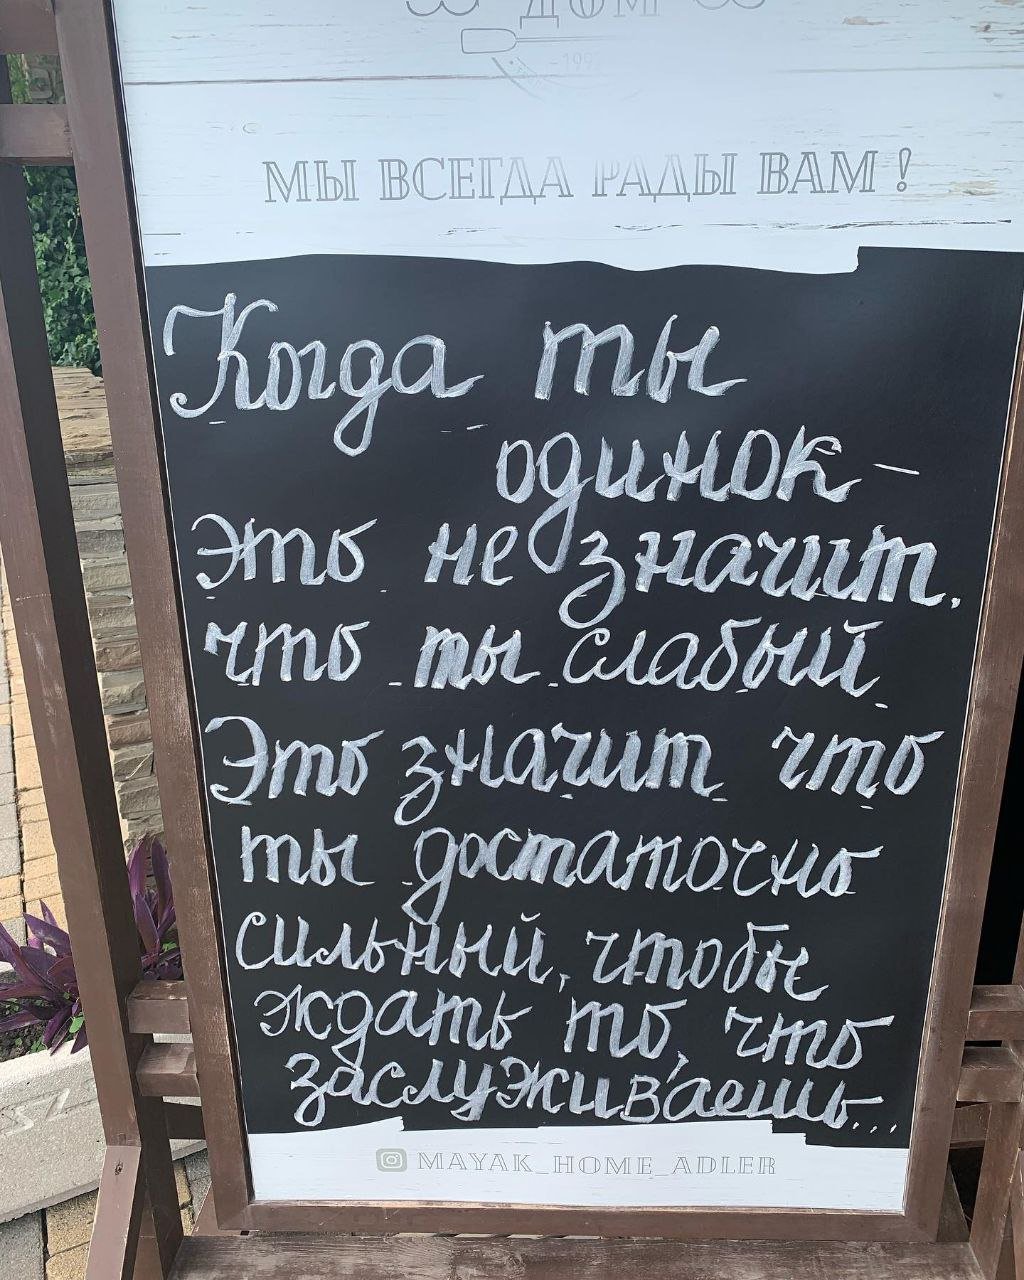 ДОМ
-1992
МЫ ВСЕГДА РАДЫ ВАМ !
Когда ты
одинок -
это не значит,
что ты слабый
Это значит что
ты достаточно
сильный, чтобы
ждать то, что
заслуживаешь...
MAYAK_HOME_ADLER